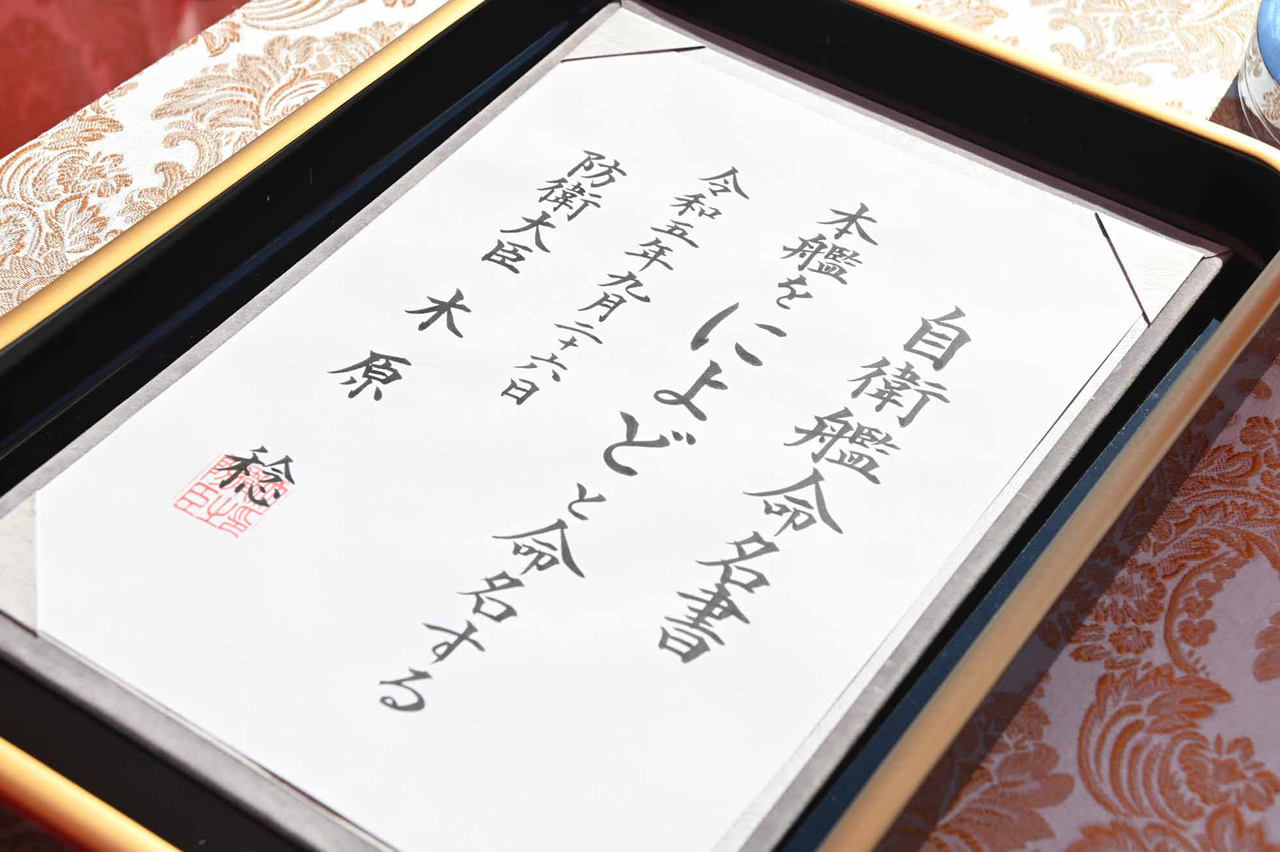 自衛艦命名書
本艦を によど と命名する
令和五年九月二十六日
防衛大臣 木原 稔